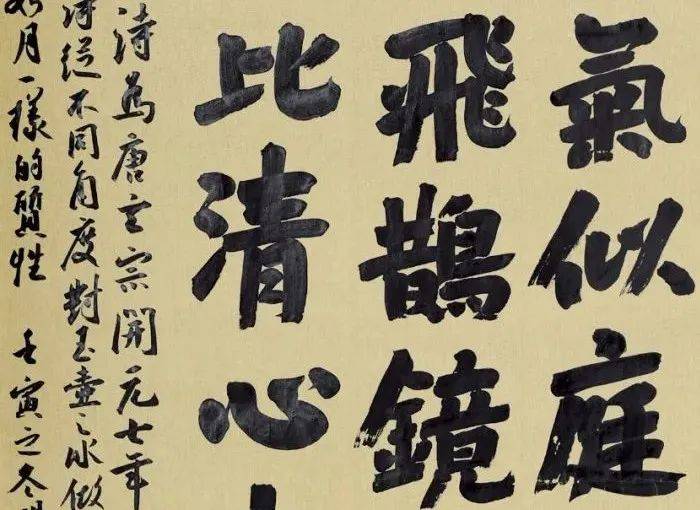 氣似庭
飛鵲鏡
比清心
詩為唐玄宗開元七年
詩從不同角度對玉壺之冰做
月一樣的質性 壬寅之冬